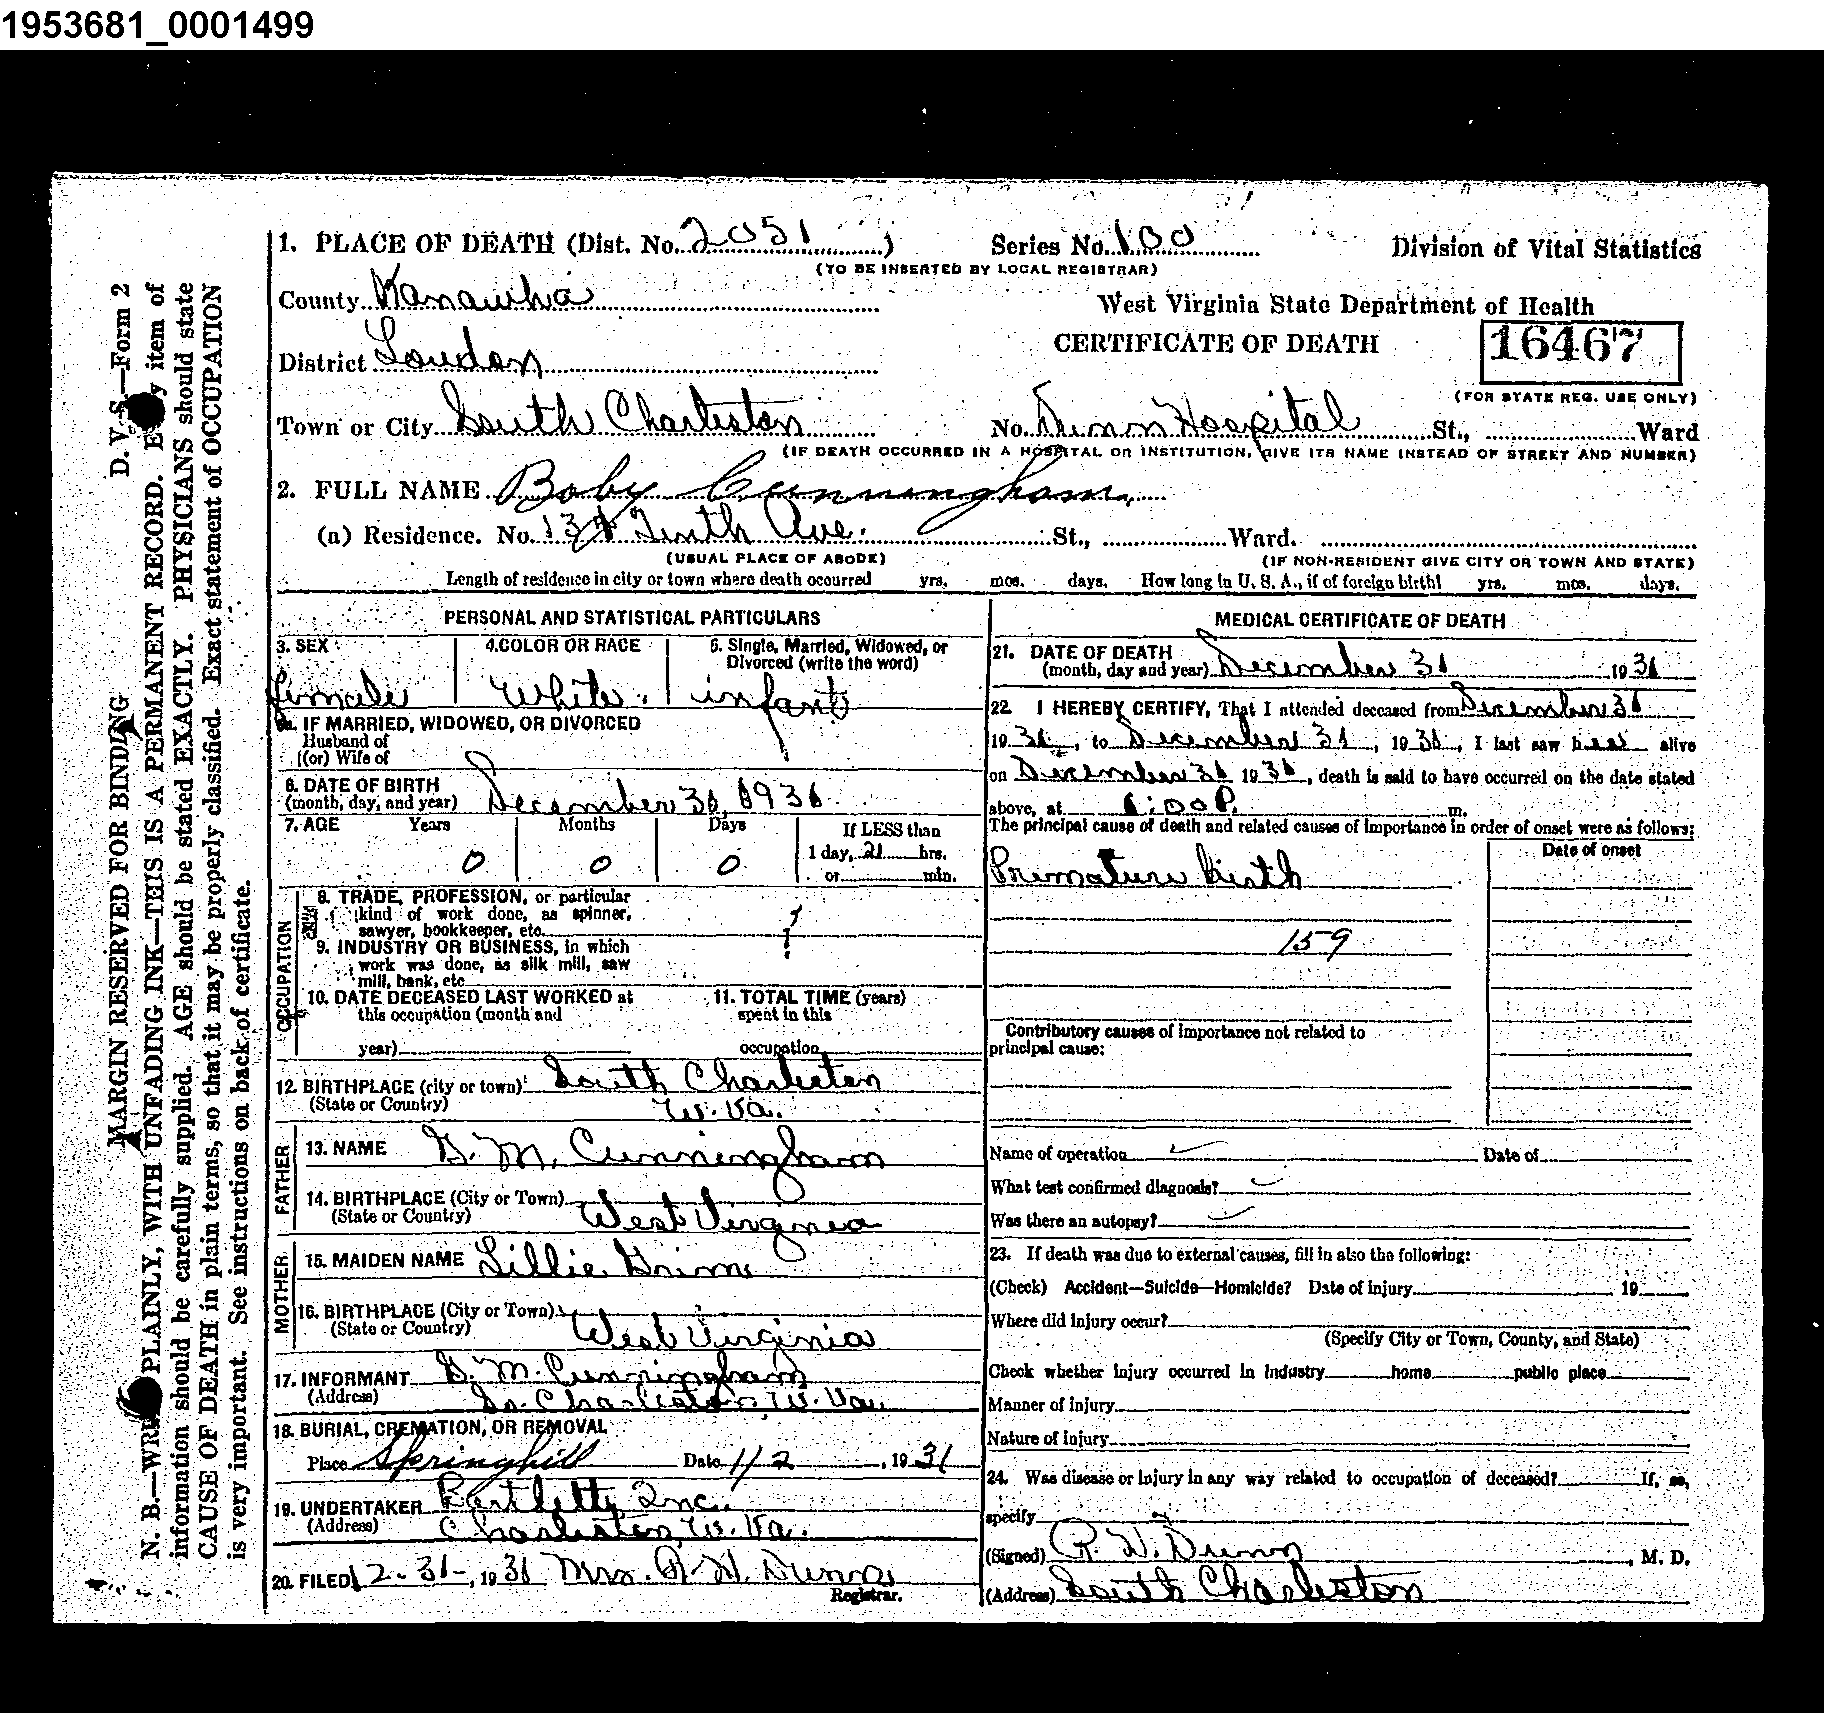 1953681_0001499
1. PLACE OF DEATH (Dist. No. 2051) Series No. 100 Division of Vital Statistics
(TO BE INSERTED BY LOCAL REGISTRAR)
County Kanawha West Virginia State Department of Health
District Loudon CERTIFICATE OF DEATH 16467
(FOR STATE REG. USE ONLY)
Town or City South Charleston No. Dunn Hospital St., Ward
(IF DEATH OCCURRED IN A HOSPITAL OR INSTITUTION, GIVE ITS NAME INSTEAD OF STREET AND NUMBER)
2. FULL NAME Baby Cunningham
(a) Residence. No. Tenth Ave. St., Ward.
(USUAL PLACE OF ABODE) (IF NON-RESIDENT GIVE CITY OR TOWN AND STATE)
Length of residence in city or town where death occurred yrs. mos. days. How long in U. S. A., if of foreign birth? yrs. mos. days.
PERSONAL AND STATISTICAL PARTICULARS
3. SEX 4. COLOR OR RACE 5. Single, Married, Widowed, or
Divorced (write the word)
female White. infant
5a. IF MARRIED, WIDOWED, OR DIVORCED
Husband of
(or) Wife of
6. DATE OF BIRTH
(month, day, and year) December 31, 1931
7. AGE Years Months Days If LESS than
0 0 0 1 day, 21 hrs.
or min.
OCCUPATION
8. TRADE, PROFESSION, or particular
kind of work done, as spinner,
sawyer, bookkeeper, etc.
9. INDUSTRY OR BUSINESS, in which
work was done, as silk mill, saw
mill, bank, etc
10. DATE DECEASED LAST WORKED at 11. TOTAL TIME (years)
this occupation (month and spent in this
year) occupation
12. BIRTHPLACE (city or town) South Charleston
(State or Country) W. Va.
FATHER
13. NAME G. M. Cunningham
14. BIRTHPLACE (City or Town)
(State or Country) West Virginia
MOTHER
15. MAIDEN NAME Lillie Grim
16. BIRTHPLACE (City or Town)
(State or Country) West Virginia
17. INFORMANT G. M. Cunningham
(Address) So. Charleston, W. Va.
18. BURIAL, CREMATION, OR REMOVAL
Place Springhill Date 1/2, 1931
19. UNDERTAKER Bartletts Inc.
(Address) Charleston, W. Va.
20. FILED 12-31-, 1931 Mrs. R. W. Dunn
Registrar.
MEDICAL CERTIFICATE OF DEATH
21. DATE OF DEATH
(month, day and year) December 31 1931
22. I HEREBY CERTIFY, That I attended deceased from December 31
1931, to December 31, 1931, I last saw her alive
on December 31 1931, death is said to have occurred on the date stated
above, at :00 P. m.
The principal cause of death and related causes of importance in order of onset were as follows:
Date of onset
Premature birth
159
Contributory causes of importance not related to
principal cause:
Name of operation Date of
What test confirmed diagnosis?
Was there an autopsy?
23. If death was due to external causes, fill in also the following:
(Check) Accident—Suicide—Homicide? Date of injury 19
Where did injury occur?
(Specify City or Town, County, and State)
Check whether injury occurred in industry home public place
Manner of injury
Nature of injury
24. Was disease or injury in any way related to occupation of deceased? If, so,
specify
(Signed) R. W. Dunn, M. D.
(Address) South Charleston
D. V. S.—Form 2
MARGIN RESERVED FOR BINDING
N. B.—WRITE PLAINLY, WITH UNFADING INK—THIS IS A PERMANENT RECORD. Every item of
information should be carefully supplied. AGE should be stated EXACTLY. PHYSICIANS should state
CAUSE OF DEATH in plain terms, so that it may be properly classified. Exact statement of OCCUPATION
is very important. See instructions on back of certificate.